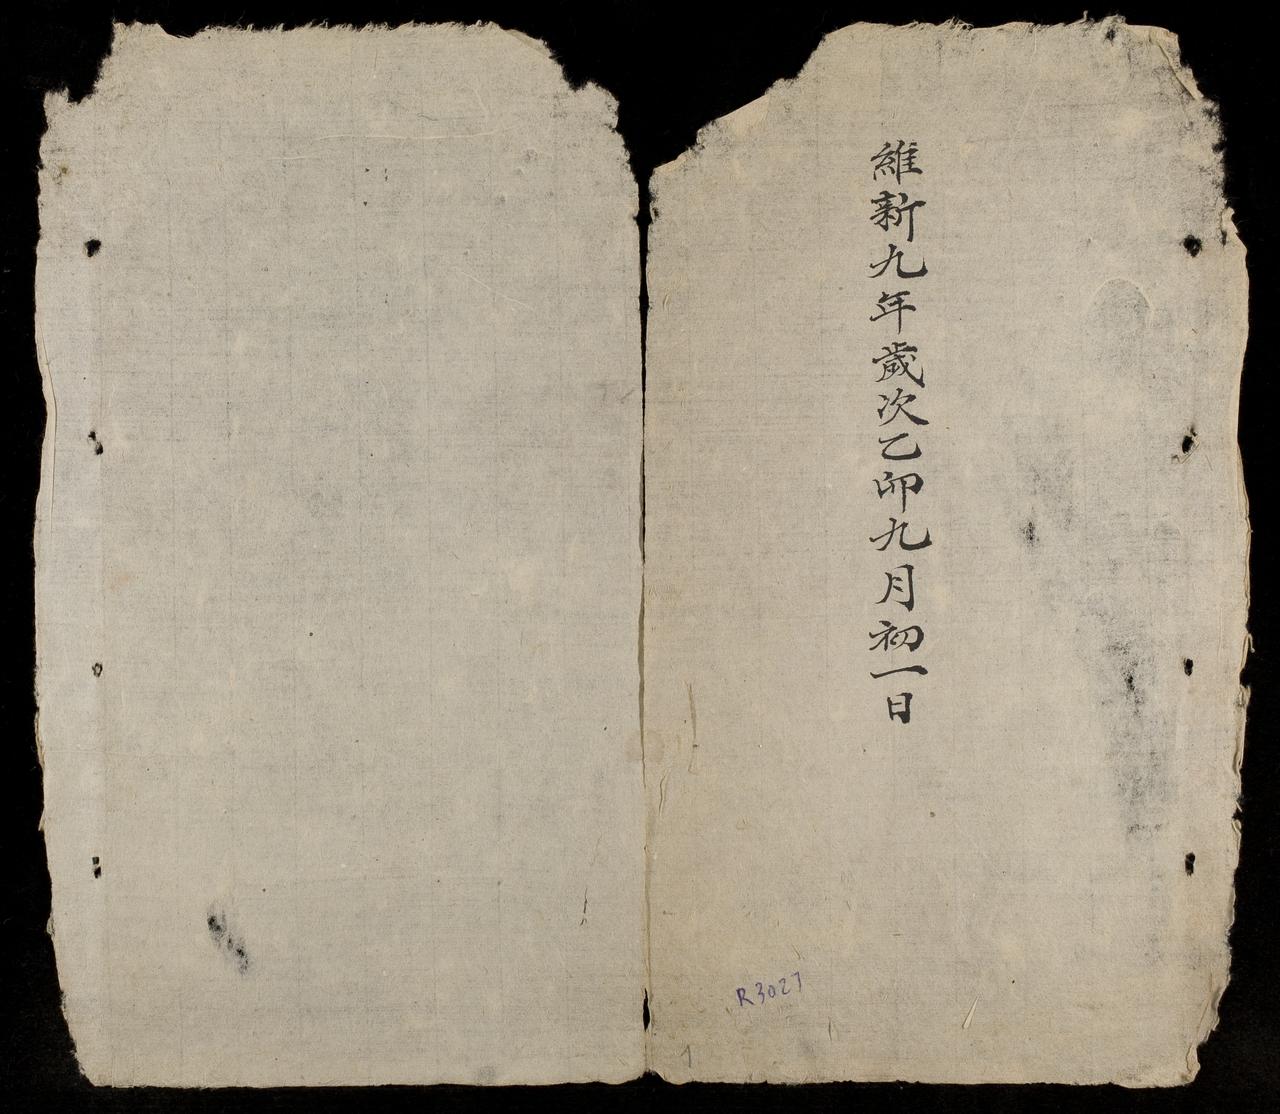 維新九年歲次乙卯九月初一日
R3027
1